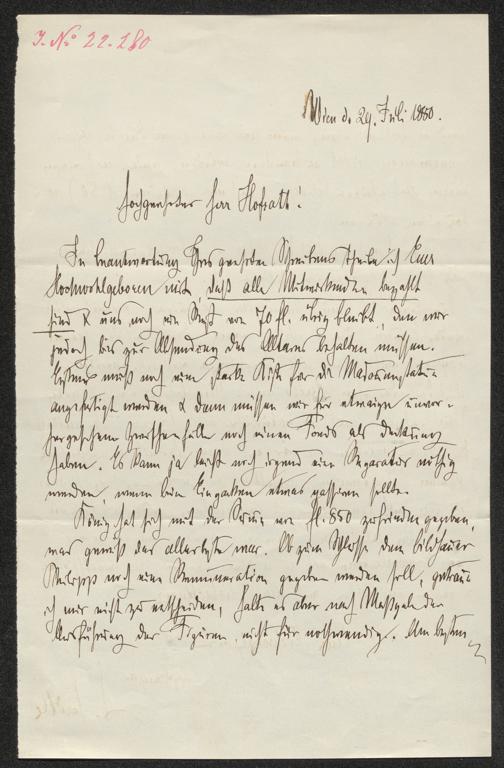 J. No 22.280
Wien d. 29. Juli 1880.
Hochgeehrter Herr Hofrath!
In Beantwortung Ihres geehrten Schreibens theile ich Euer
Hochwohlgeboren mit, daß alle Mitwirkenden bezahlt
sind & uns noch ein Rest von 70 fl. übrig bleibt, den wir
jedoch bis zur Absendung des Altares behalten müssen.
Erstens muß noch eine starke Kiste für die Madonnenstatue
angefertigt werden & dann müssen wir für etwaige unvor-
hergesehene Zwischenfälle noch einen Fonds als Deckung
haben. Es kann ja leicht noch irgend eine Reparatur nöthig
werden, wenn beim Einpacken etwas passieren sollte.
König hat sich mit der Summe von fl. 850 zufrieden gegeben,
was gewiß das allerbeste war. Ob zum Schlusse dem Bildhauer
noch eine Remuneration gegeben werden soll, getraue
ich mir nicht zu entscheiden, halte es aber nach Maßgabe der
Ausführung der Figuren nicht für nothwendig. Am besten